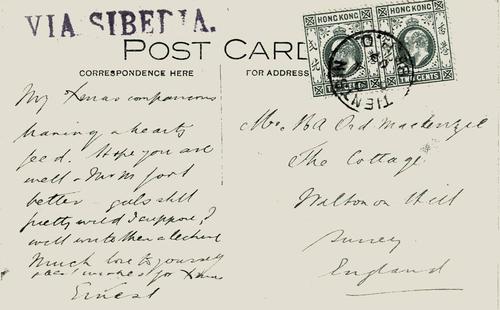 VIA SIBERIA.
POST CARD
CORRESPONDENCE HERE
FOR ADDRESS
HONG KONG
HONG KONG
TWO CENTS
TIENTSIN
My Xmas companions
having a hearty
feed. Hope you are
well &
better gals still
pretty wild I suppose,?
will write them a lecture
Much love to yourself
& best wishes for Xmas
Ernest
Mrs Ord Mackenzie
The Cottage
Walton on Hill
Surrey
England